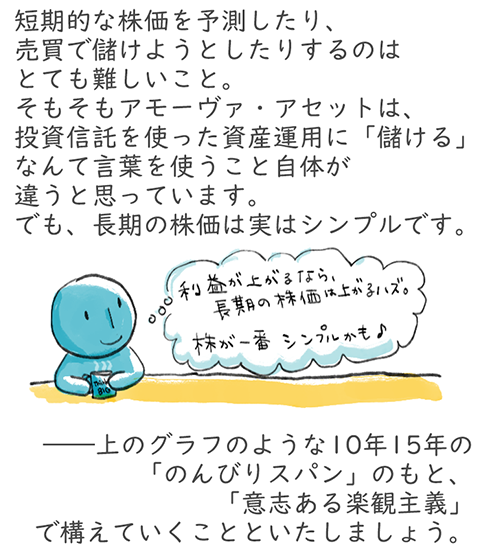 短期的な株価を予測したり、
売買で儲けようとしたりするのは
とても難しいこと。
そもそもアモーヴァ・アセットは、
投資信託を使った資産運用に「儲ける」
なんて言葉を使うこと自体が
違うと思っています。
でも、長期の株価は実はシンプルです。
利益が上がるなら、
長期の株価は上がるハズ。
株が一番 シンプルかも♪
――上のグラフのような10年15年の
「のんびりスパン」のもと、
「意志ある楽観主義」
で構えていくことといたしましょう。